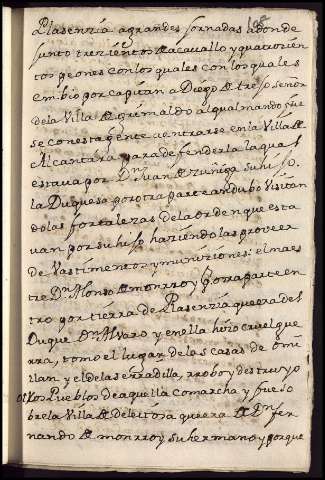 Plasenzia agrandes Jornadas adonde
Junto trezientos de acavallo y quatrocien
tos peones con los quales con los quales
embio por capitan a Diego de trejo señor
dela Villa de grimaldo al qual mando fue
se con esta gente aentrarse en la Villa de
Alcantara para defenderla la qual
estava por Dn Juan de zuñiga su hijo.
la Duquesa por otra parte andubo Visitan
do las fortalezas dela orden que esta
van por su hijo haziendolas proveer
de Vastimentos y muniziones: el maes
tre Dn Alonso de monrroy por otra parte en
tro por tierra de Plasenzia que era del
Duque Dn Alvaro y en ella hizo cruel gue
rra, tomo el lugar de las casas de
millan y el de la serradilla, rrobo y destruyo
otros Pueblos de aquella comarcha y fue so
bre la Villa de deleitosa que era de Dn fer
nando de monrroy su hermano y porque